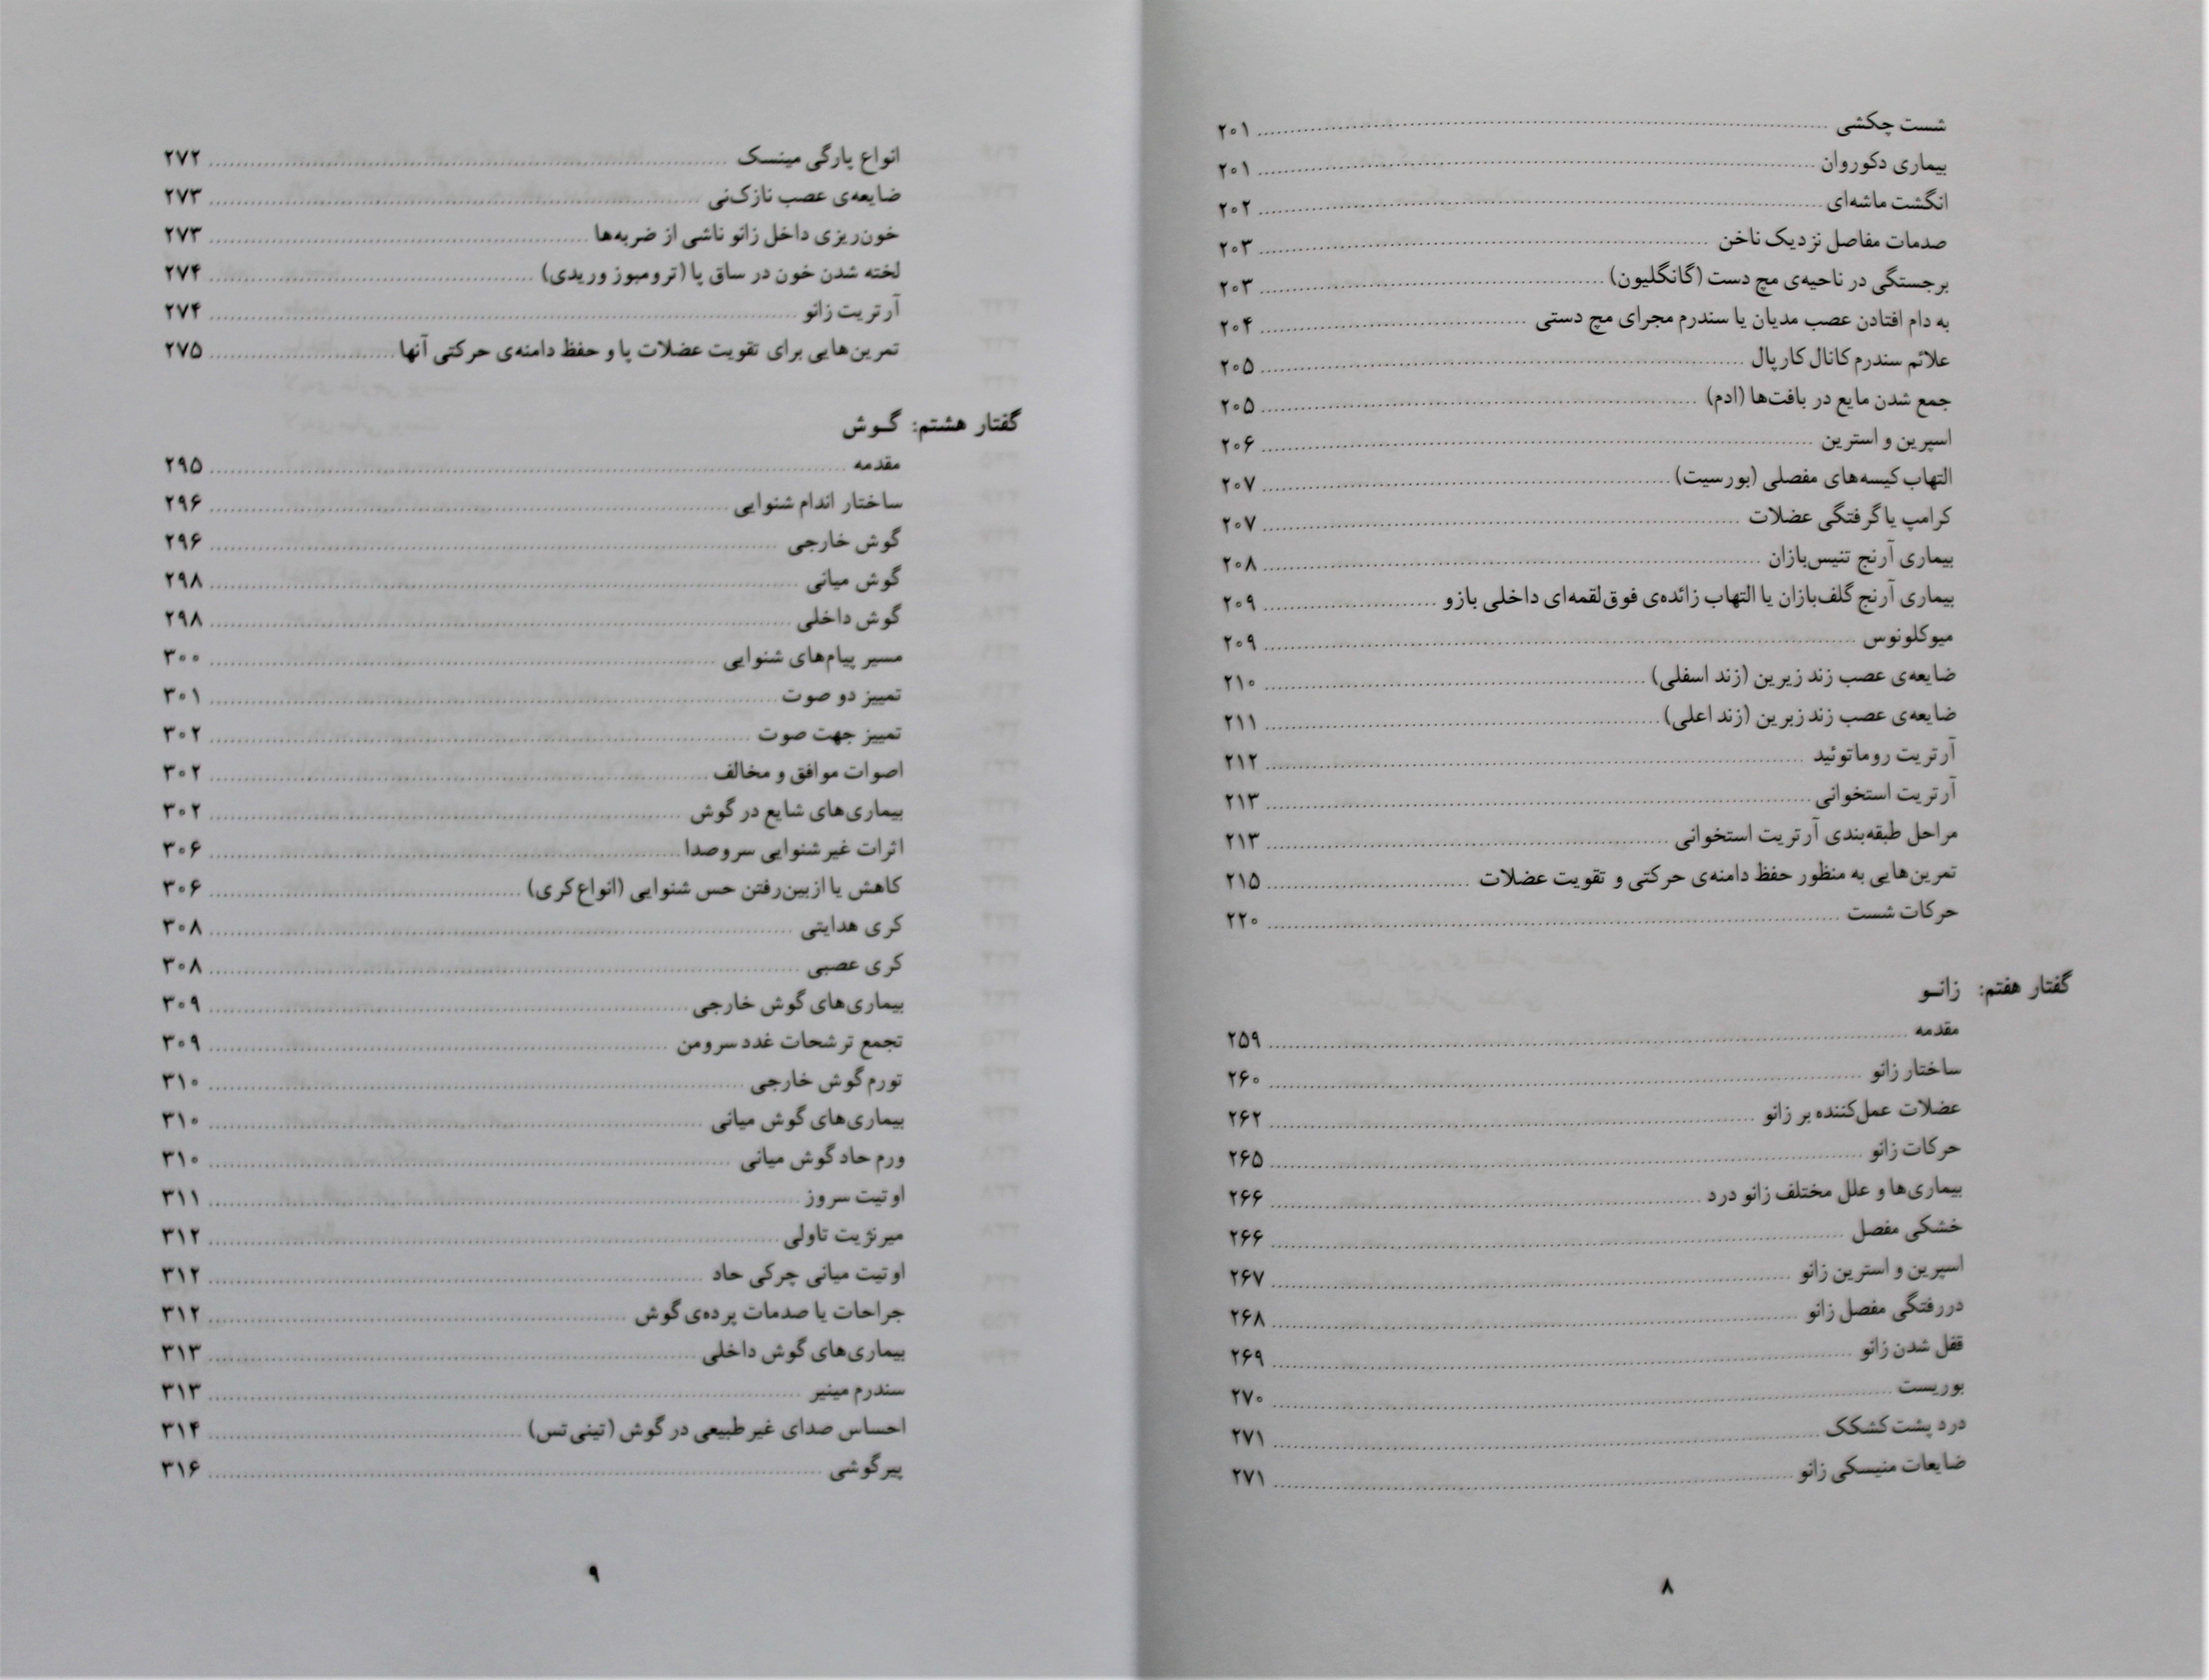 شست چکشی ........ ۲۰۱
بیماری دکوروان ........ ۲۰۱
انگشت ماشه‌ای ........ ۲۰۲
صدمات مفاصل نزدیک ناخن ........ ۲۰۳
برجستگی در ناحیه‌ی مچ دست (گانگلیون) ........ ۲۰۳
به دام افتادن عصب مدیان یا سندرم مجرای مچ دستی ........ ۲۰۴
علائم سندرم کانال کارپال ........ ۲۰۵
جمع شدن مایع در بافت‌ها (ادم) ........ ۲۰۵
اسپرین و استرین ........ ۲۰۶
التهاب کیسه‌های مفصلی (بورسیت) ........ ۲۰۷
کرامپ یا گرفتگی عضلات ........ ۲۰۷
بیماری آرنج تنیس‌بازان ........ ۲۰۸
بیماری آرنج گلف‌بازان یا التهاب زائده‌ی فوق‌لقمه‌ای داخلی بازو ........ ۲۰۹
میوکلونوس ........ ۲۰۹
ضایعه‌ی عصب زند زیرین (زند اسفلی) ........ ۲۱۰
ضایعه‌ی عصب زند زبرین (زند اعلی) ........ ۲۱۱
آرتریت روماتوئید ........ ۲۱۲
آرتریت استخوانی ........ ۲۱۳
مراحل طبقه‌بندی آرتریت استخوانی ........ ۲۱۳
تمرین‌هایی به منظور حفظ دامنه‌ی حرکتی و تقویت عضلات ........ ۲۱۵
حرکات شست ........ ۲۲۰
گفتار هفتم: زانـو
مقدمه ........ ۲۵۹
ساختار زانو ........ ۲۶۰
عضلات عمل‌کننده بر زانو ........ ۲۶۲
حرکات زانو ........ ۲۶۵
بیماری‌ها و علل مختلف زانو درد ........ ۲۶۶
خشکی مفصل ........ ۲۶۶
اسپرین و استرین زانو ........ ۲۶۷
دررفتگی مفصل زانو ........ ۲۶۸
قفل شدن زانو ........ ۲۶۹
بوریست ........ ۲۷۰
درد پشت کشکک ........ ۲۷۱
ضایعات منیسکی زانو ........ ۲۷۱
۸
انواع پارگی مینسک ........ ۲۷۲
ضایعه‌ی عصب نازک‌نی ........ ۲۷۳
خون‌ریزی داخل زانو ناشی از ضربه‌ها ........ ۲۷۳
لخته شدن خون در ساق پا (ترومبوز وریدی) ........ ۲۷۴
آرتریت زانو ........ ۲۷۴
تمرین‌هایی برای تقویت عضلات پا و حفظ دامنه‌ی حرکتی آنها ........ ۲۷۵
گفتار هشتم: گـوش
مقدمه ........ ۲۹۵
ساختار اندام شنوایی ........ ۲۹۶
گوش خارجی ........ ۲۹۶
گوش میانی ........ ۲۹۸
گوش داخلی ........ ۲۹۸
مسیر پیام‌های شنوایی ........ ۳۰۰
تمییز دو صوت ........ ۳۰۱
تمییز جهت صوت ........ ۳۰۲
اصوات موافق و مخالف ........ ۳۰۲
بیماری‌های شایع در گوش ........ ۳۰۲
اثرات غیرشنوایی سروصدا ........ ۳۰۶
کاهش یا ازبین‌رفتن حس شنوایی (انواع کری) ........ ۳۰۶
کری هدایتی ........ ۳۰۸
کری عصبی ........ ۳۰۸
بیماری‌های گوش خارجی ........ ۳۰۹
تجمع ترشحات غدد سرومن ........ ۳۰۹
تورم گوش خارجی ........ ۳۱۰
بیماری‌های گوش میانی ........ ۳۱۰
ورم حاد گوش میانی ........ ۳۱۰
اوتیت سروز ........ ۳۱۱
میرنژیت تاولی ........ ۳۱۲
اوتیت میانی چرکی حاد ........ ۳۱۲
جراحات یا صدمات پرده‌ی گوش ........ ۳۱۲
بیماری‌های گوش داخلی ........ ۳۱۳
سندرم مینیر ........ ۳۱۳
احساس صدای غیرطبیعی در گوش (تینی‌تس) ........ ۳۱۴
پیرگوشی ........ ۳۱۶
۹